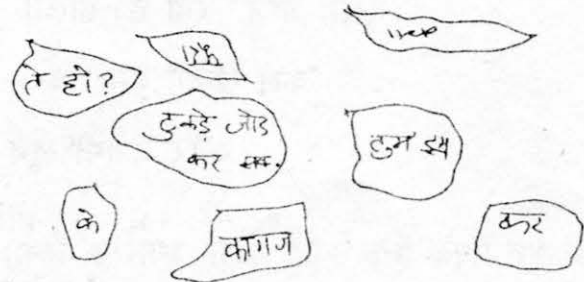 त हो?
टुकड़े जोड़
कर
तुम इस
के
कागज
कर